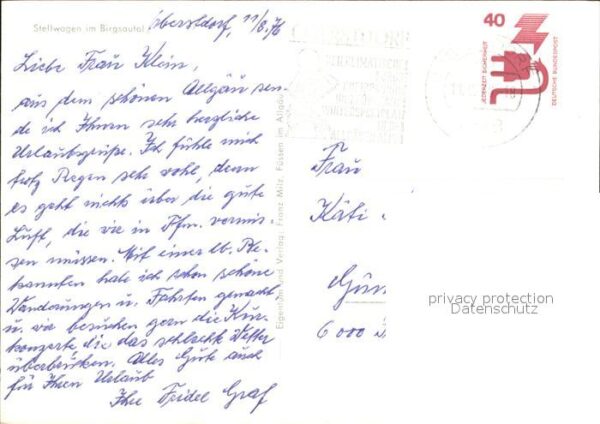 Stellwagen im Birgsautal
Oberstdorf, 11/8.76
Liebe Frau Klein,
aus dem schönen Allgäu sen-
de ich Ihnen sehr herzliche
Urlaubsgrüße. Ich fühle mich
trotz Regen sehr wohl, denn
es geht nichts über die gute
Luft, die wir in Ffm. vermis-
sen müssen. Mit einer lb. Be-
kannten habe ich schon schöne
Wanderungen u. Fahrten gemacht
u. wir besuchen gern die Kur-
konzerte die das schlechte Wetter
überbrücken. Alles Gute auch
für Ihren Urlaub
Ihre Friedel Graf
Eigentum und Verlag: Franz Milz, Füssen im Allgäu
40
JEDERZEIT SICHERHEIT
DEUTSCHE BUNDESPOST
Frau
Käti
6000
privacy protection
Datenschutz